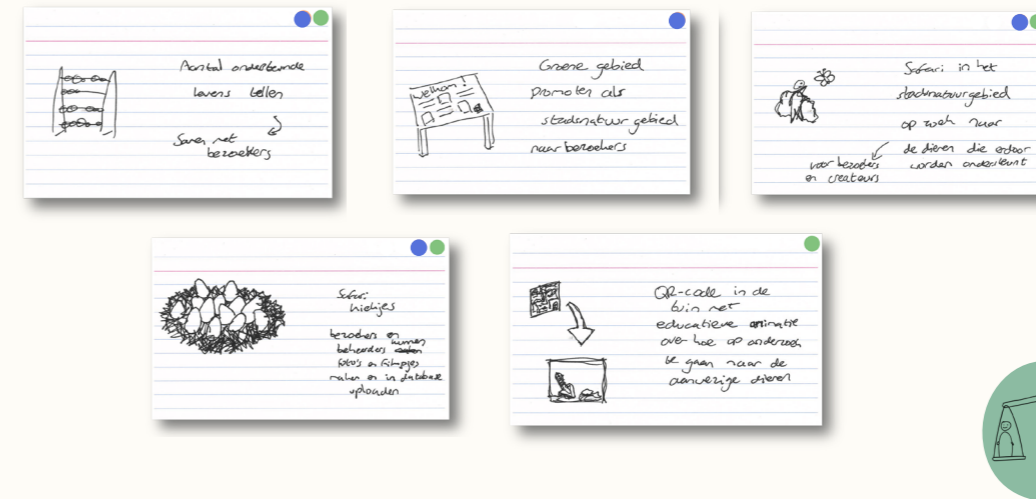 Aantal ondersteunde
levens tellen
Samen met
bezoekers
welkom!
Groene gebied
promoten als
stadsnatuur gebied
naar bezoekers
Safari in het
stadsnatuurgebied
op zoek naar
de dieren die erdoor
worden ondersteunt
voor bezoekers
en createurs
Safari
kiekjes
bezoekers en
kunnen
beheerders
foto's en filmpjes
maken en in database
uploaden
QR-code in de
tuin met
educatieve animatie
over hoe op onderzoek
te gaan naar de
aanwezige dieren